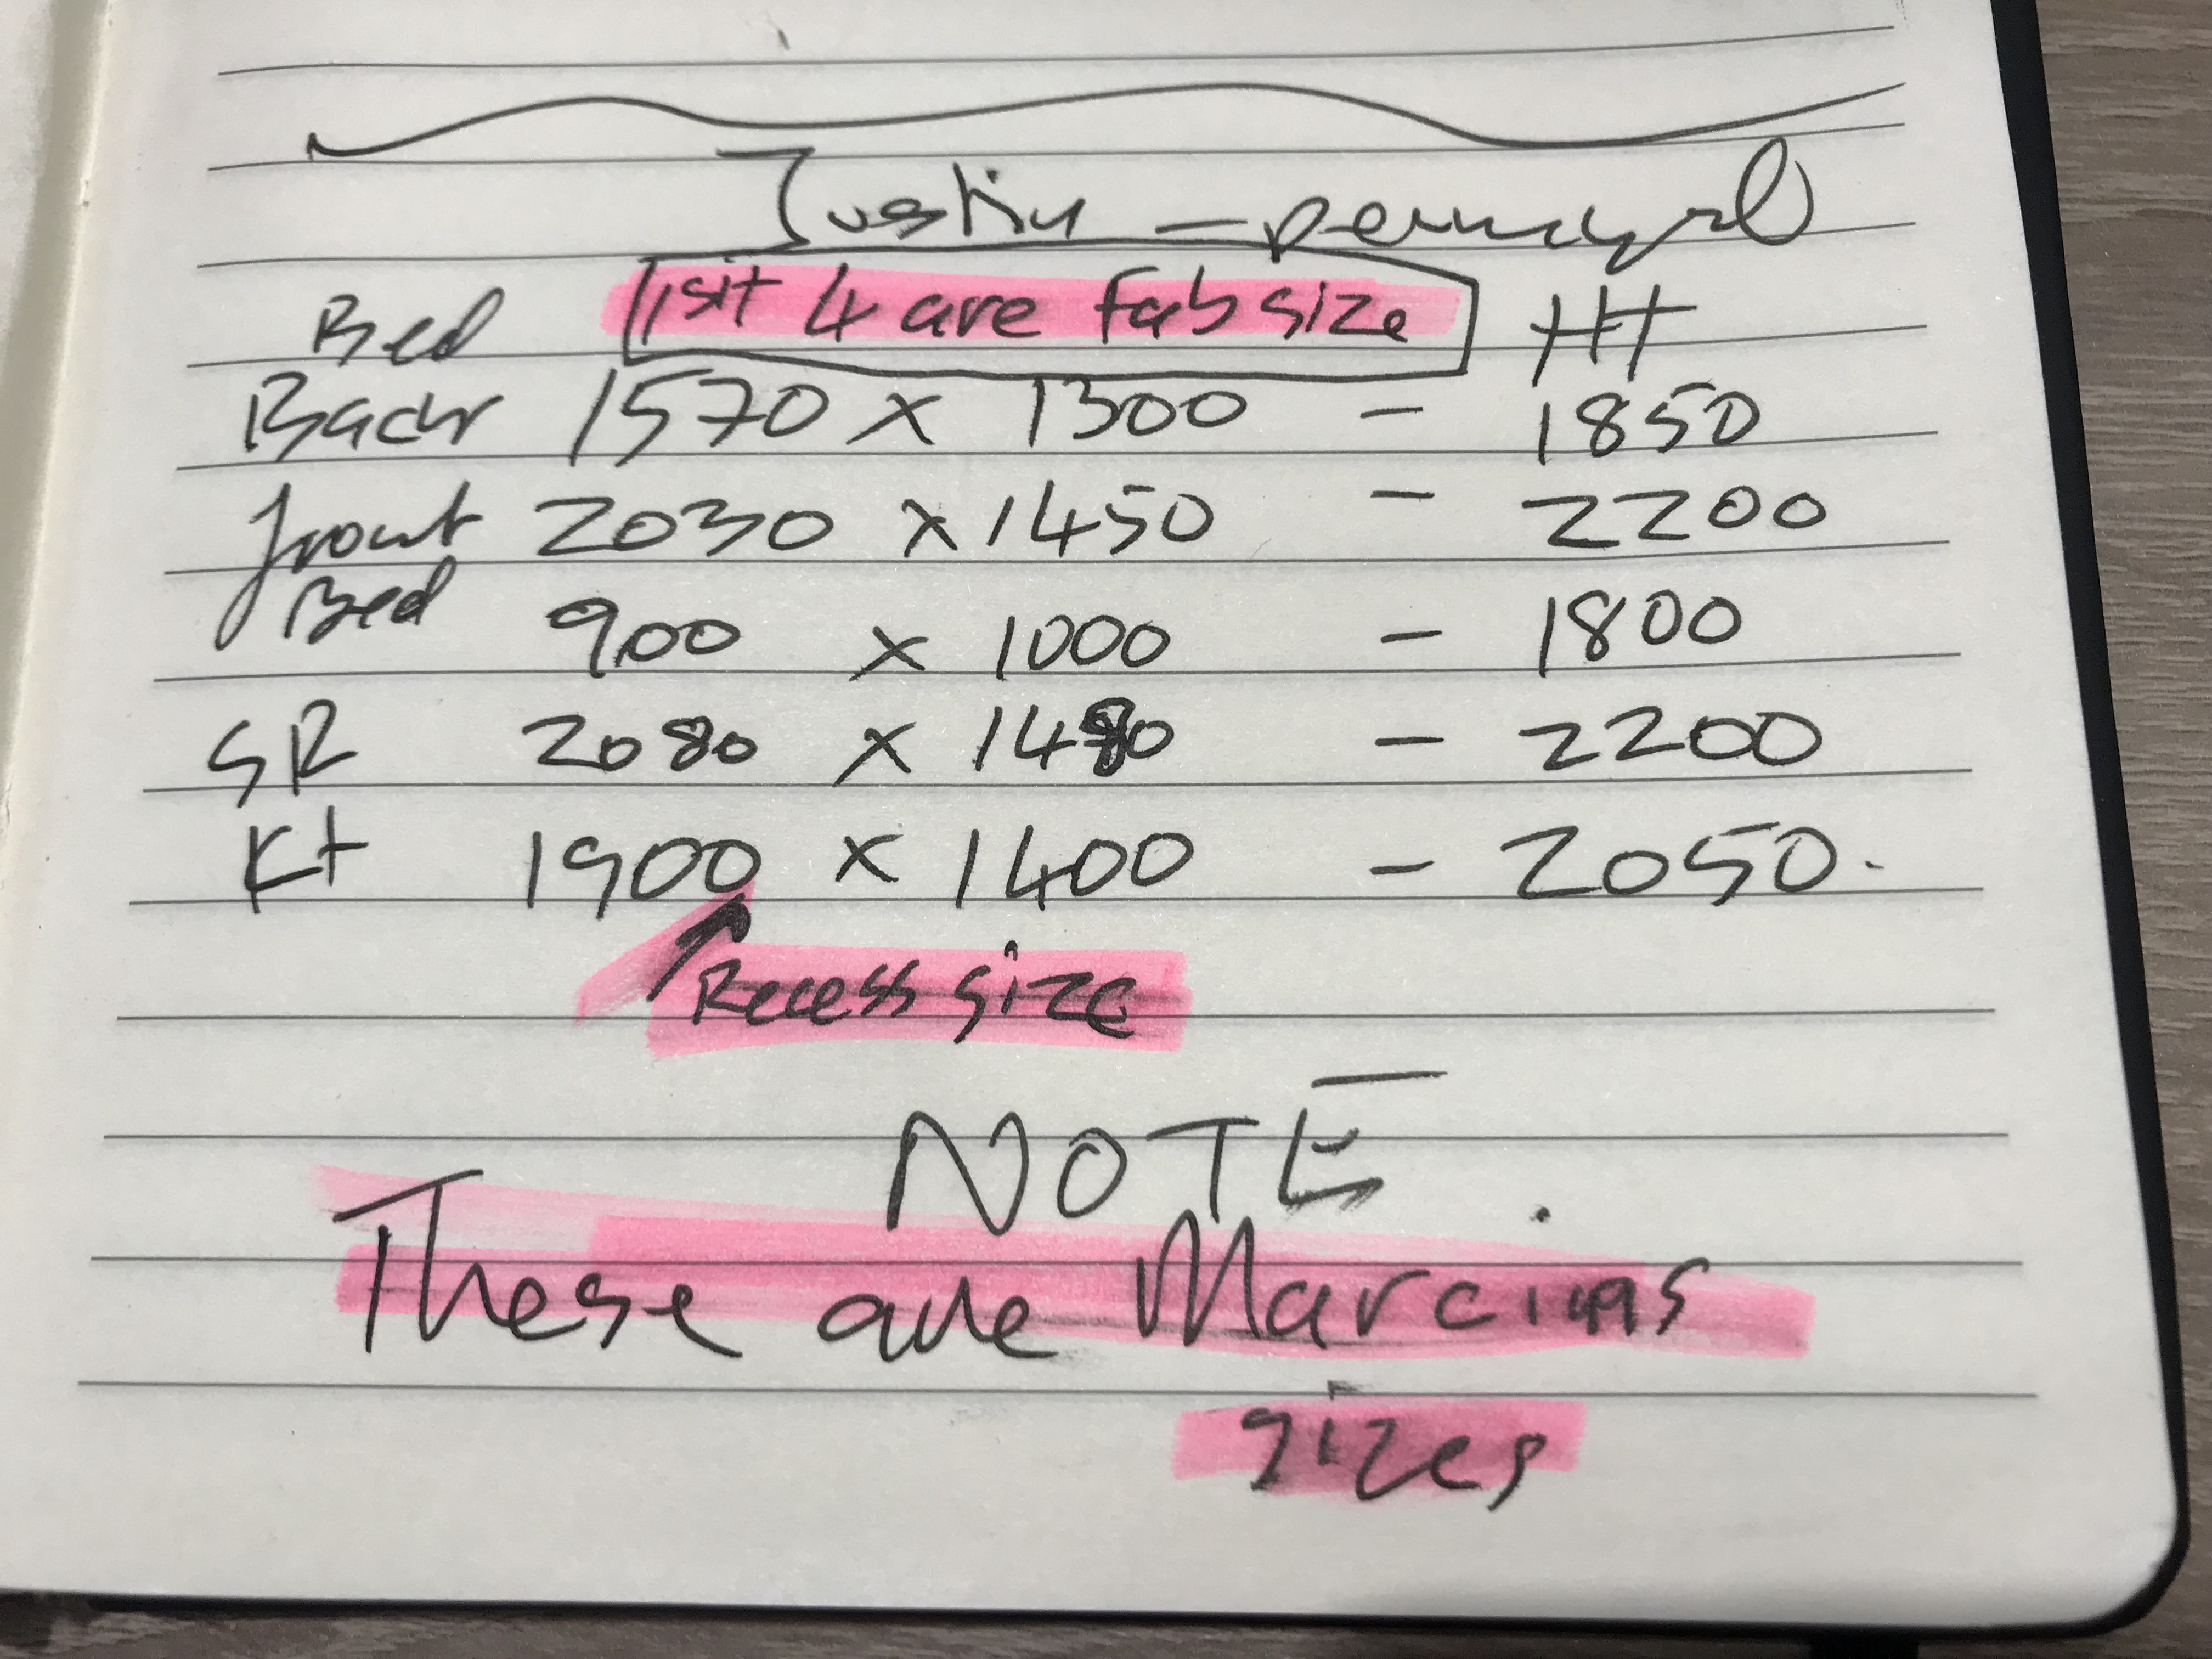 Justin –
Bed 1sit 4 are Fab size HT
Back 1570 x 1300 – 1850
front 2030 x 1450 – 2200
Bed 900 x 1000 – 1800
SR 2080 x 1480 – 2200
Kt 1900 x 1400 – 2050.
Recess size
NOTE.
These are Marcins
sizes